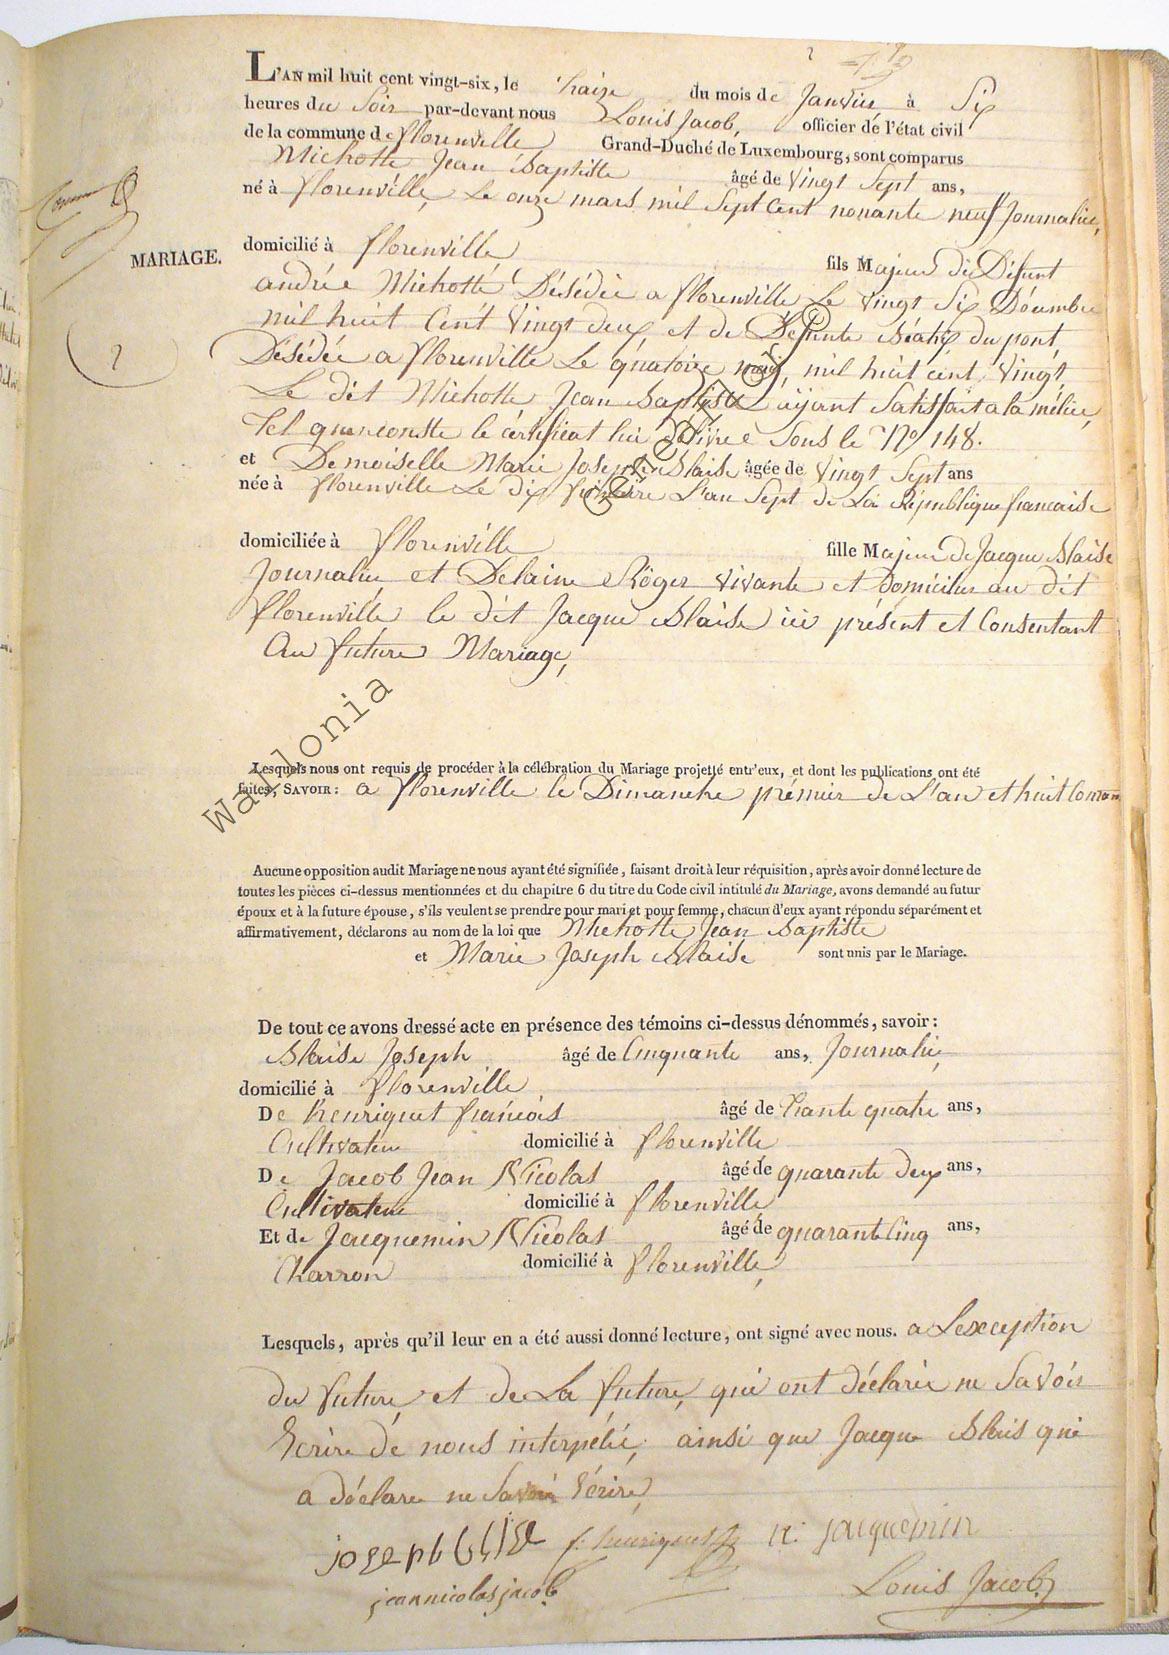 L'AN mil huit cent vingt-six, le Traize du mois de Janvier à Six
heures du Soir par-devant nous Louis Jacob, officier de l'état civil
de la commune de florenville Grand-Duché de Luxembourg, sont comparus
Michotte Jean Baptiste âgé de Vingt Sept ans,
né à florenville, Le onze mars mil Sept Cent nonante neuf Journalier,
MARIAGE.
2
domicilié à florenville fils Majeur du Défunt
andrée Michotte Désédée a florenville Le Vingt Six Décembre
mil huit Cent Vingt deux et de Défunte Béatrix du pont
Désédée a florenville Le quatorze mil huit cent Vingt
Le dit Michotte Jean Baptiste ayant Satisfait a la milice,
Tel que conste le certificat lui délivré Sous le N° 148.
et Demoiselle Marie Joseph Blaise âgée de Vingt Sept ans
née à florenville Le dix L'an Sept de La République francaise
domiciliée à florenville fille Majeure de Jacque Blaise
Journalier et Delaine Roger Vivante et domicilier au dit
florenville le dit Jacque Blaise ici présent et Consentant
Au future Mariage,
Wallonia
Lesquels nous ont requis de procéder à la célébration du Mariage projetté entr'eux, et dont les publications ont été
faites, SAVOIR : a florenville le Dimanche prémier de L'an et huit
Aucune opposition audit Mariage ne nous ayant été signifiée, faisant droit à leur réquisition, après avoir donné lecture de
toutes les pièces ci-dessus mentionnées et du chapitre 6 du titre du Code civil intitulé du Mariage, avons demandé au futur
époux et à la future épouse, s'ils veulent se prendre pour mari et pour femme, chacun d'eux ayant répondu séparément et
affirmativement, déclarons au nom de la loi que Michotte Jean Baptiste
et Marie Joseph Blaise sont unis par le Mariage.
De tout ce avons dressé acte en présence des témoins ci-dessus dénommés, savoir :
Blaise Joseph âgé de Cinquante ans, Journalier,
domicilié à florenville
De henriquet francois âgé de Trante quatre ans,
Cultivateur domicilié à florenville
De Jacob Jean Nicolas âgé de quarante deux ans,
Cultivateur domicilié à florenville
Et de Jacquemin Nicolas âgé de quarante Cinq ans,
Charron domicilié à florenville,
Lesquels, après qu'il leur en a été aussi donné lecture, ont signé avec nous. a Lexception
du future et de La future, qui ont déclarée ne Savoir
Ecrire de nous interpélié, ainsi que Jacque Blais qui
a déclare ne Savoir Ecrire,
f. henriquet n. jacquemin
jeannicolas jacob Louis Jacob